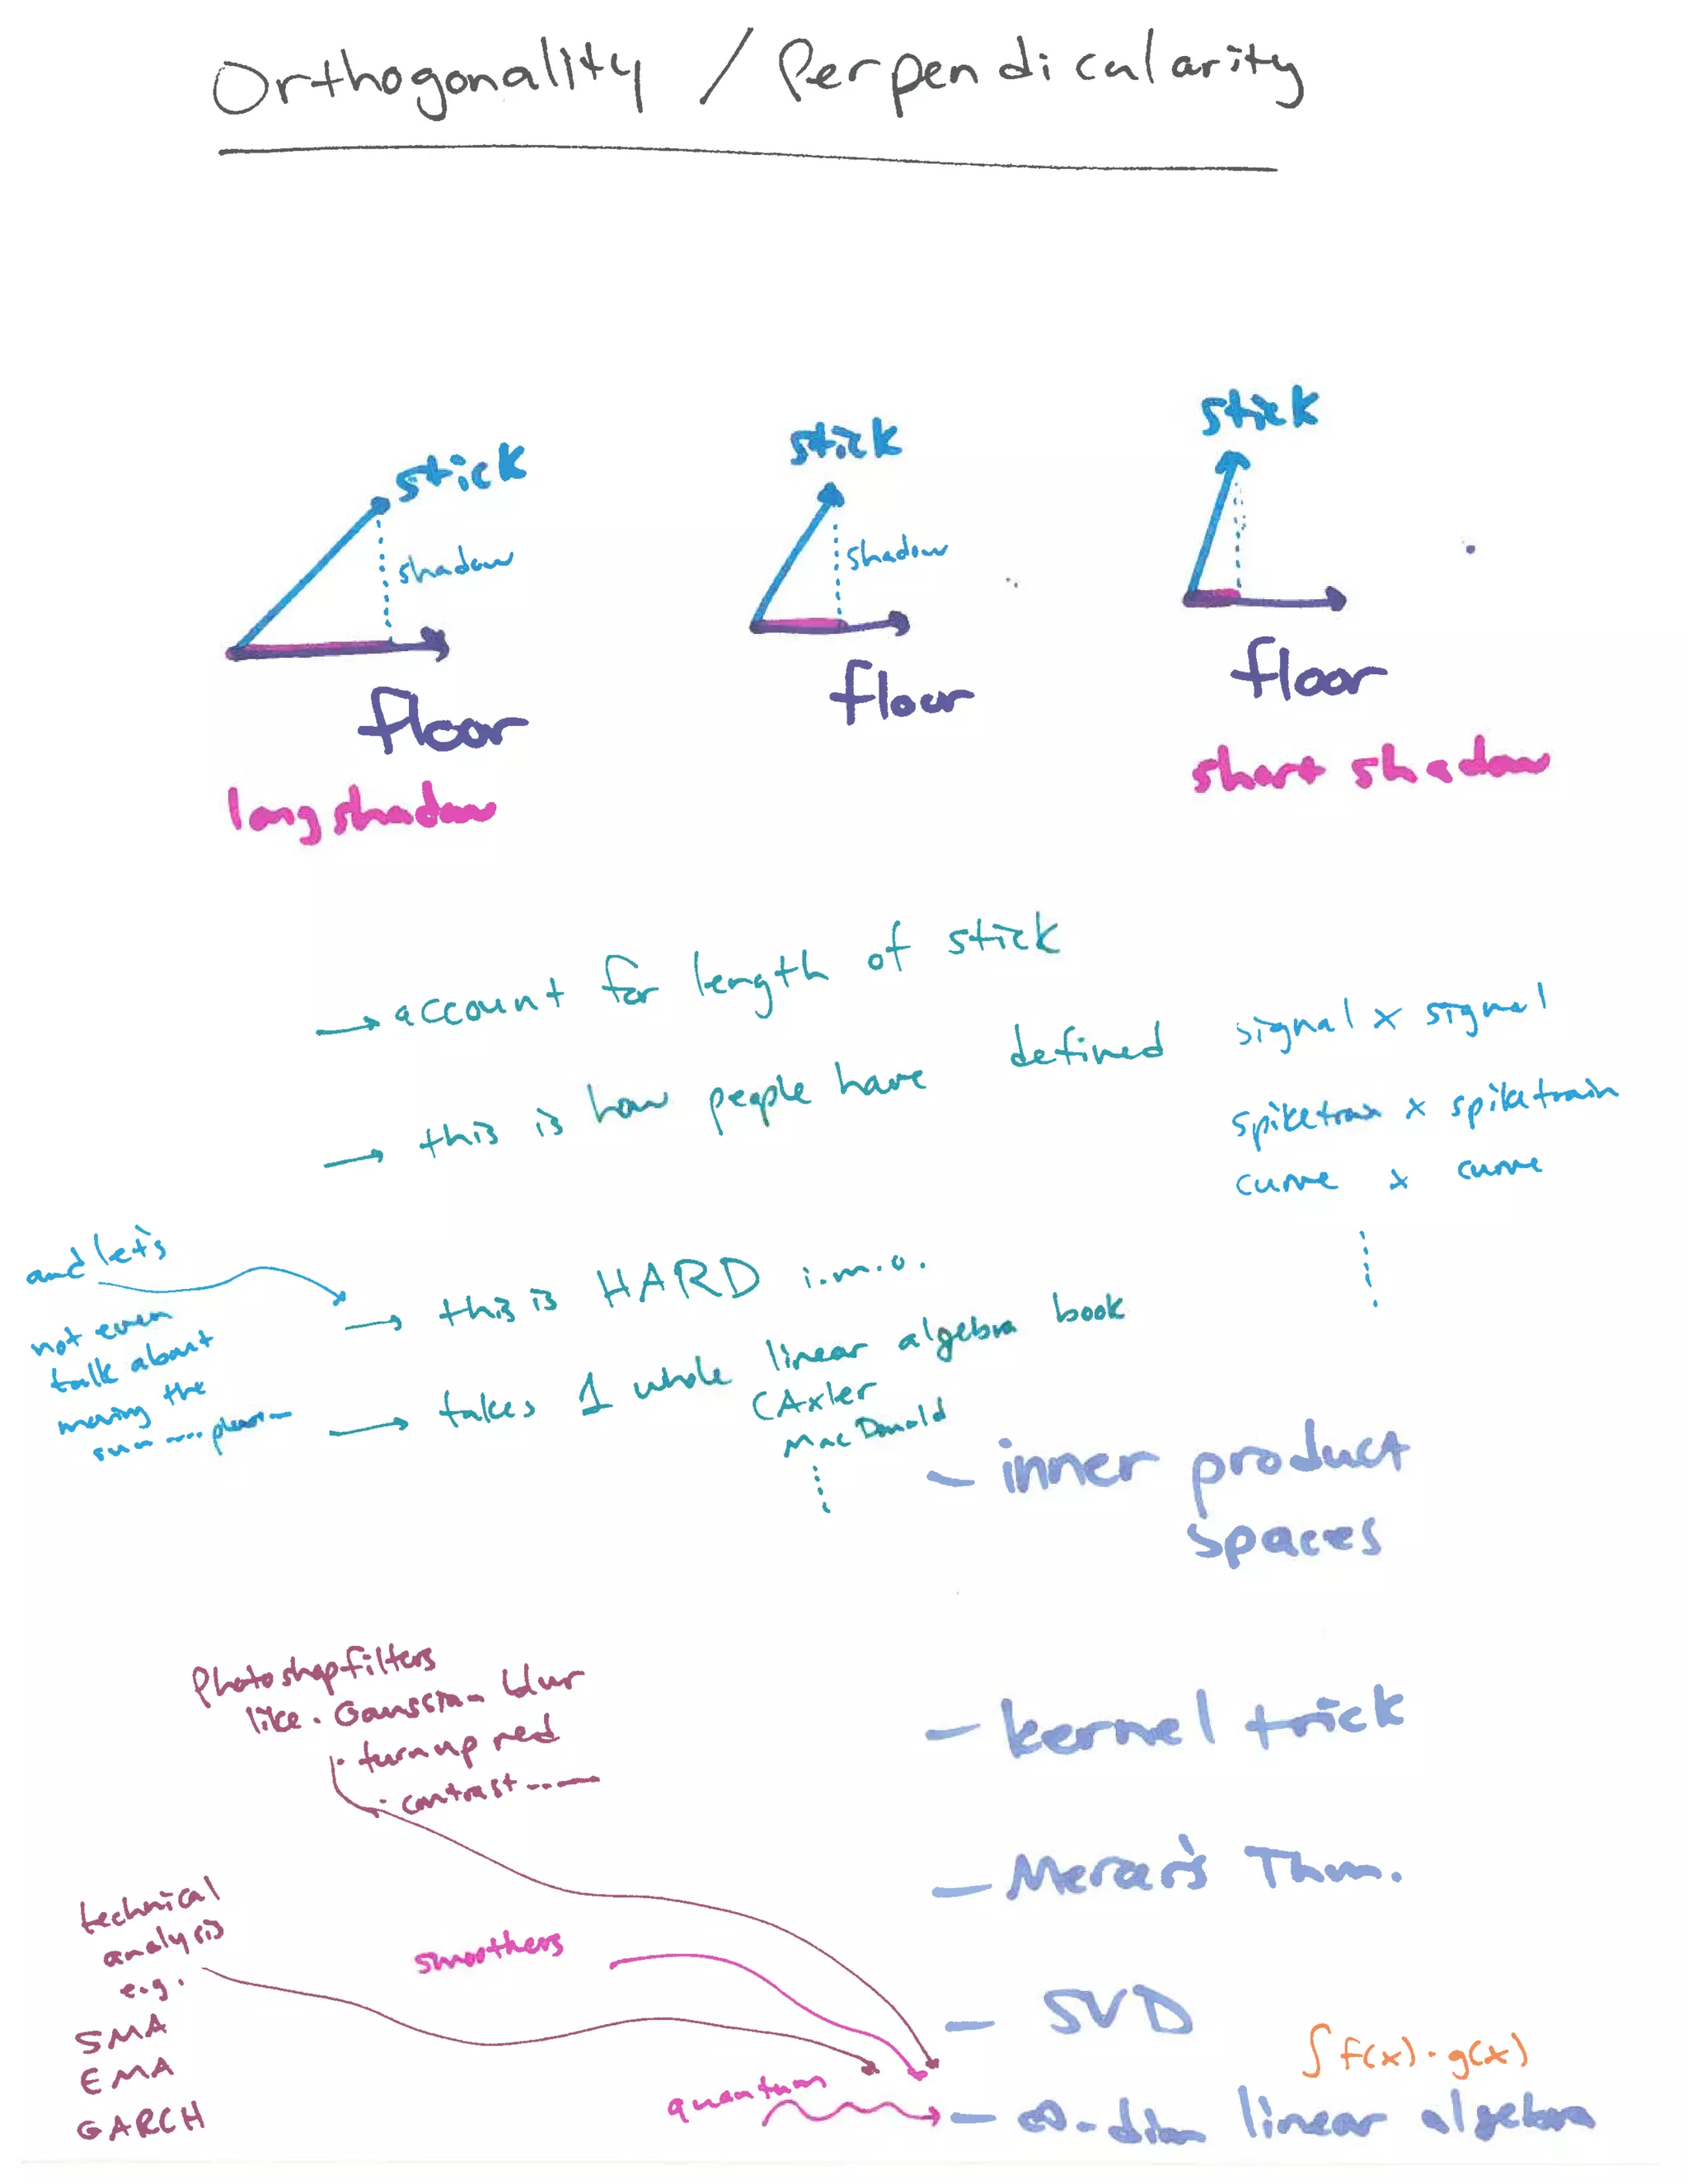 Orthogonality / Perpendicularity
stick
shadow
floor
long shadow
stick
shadow
floor
stick
floor
short shadow
→ account for length of stick
→ this is how people have defined
signal x signal
spiketrain x spiketrain
curve x curve
and let's
not even
talk about
moving the
sun ....
→ this is HARD i.m.o.
→ takes 1 whole linear algebra book
(Axler
MacDonald
- inner product
spaces
Photoshop filters
like · Gaussian blur
· turn up red
· contrast ----
- kernel trick
- Mercer's Thm.
technical
analysis
e.g.
SMA
EMA
GARCH
smoothers
- SVD
∫ f(x) · g(x)
quantum
- ∞-dim linear algebra